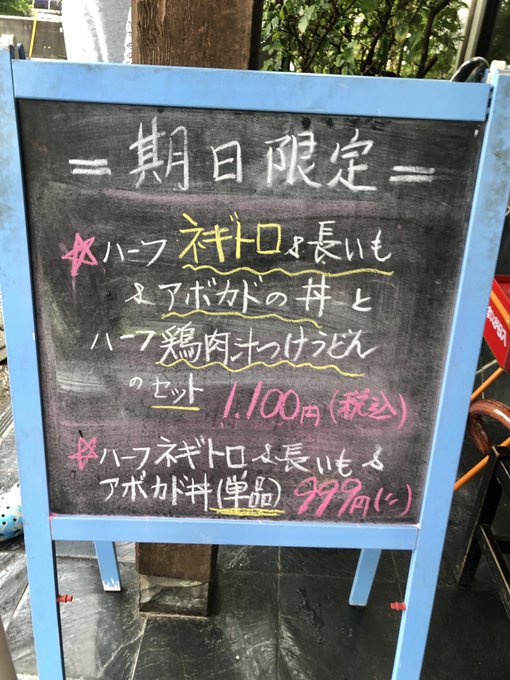 =期日限定=
☆ハーフ ネギトロ&長いも
&アボカドの丼と
ハーフ鶏肉汁つけうどん
のセット 1,100円(税込)
☆ハーフネギトロ&長いも&
アボカド丼(単品) 999円(〃)